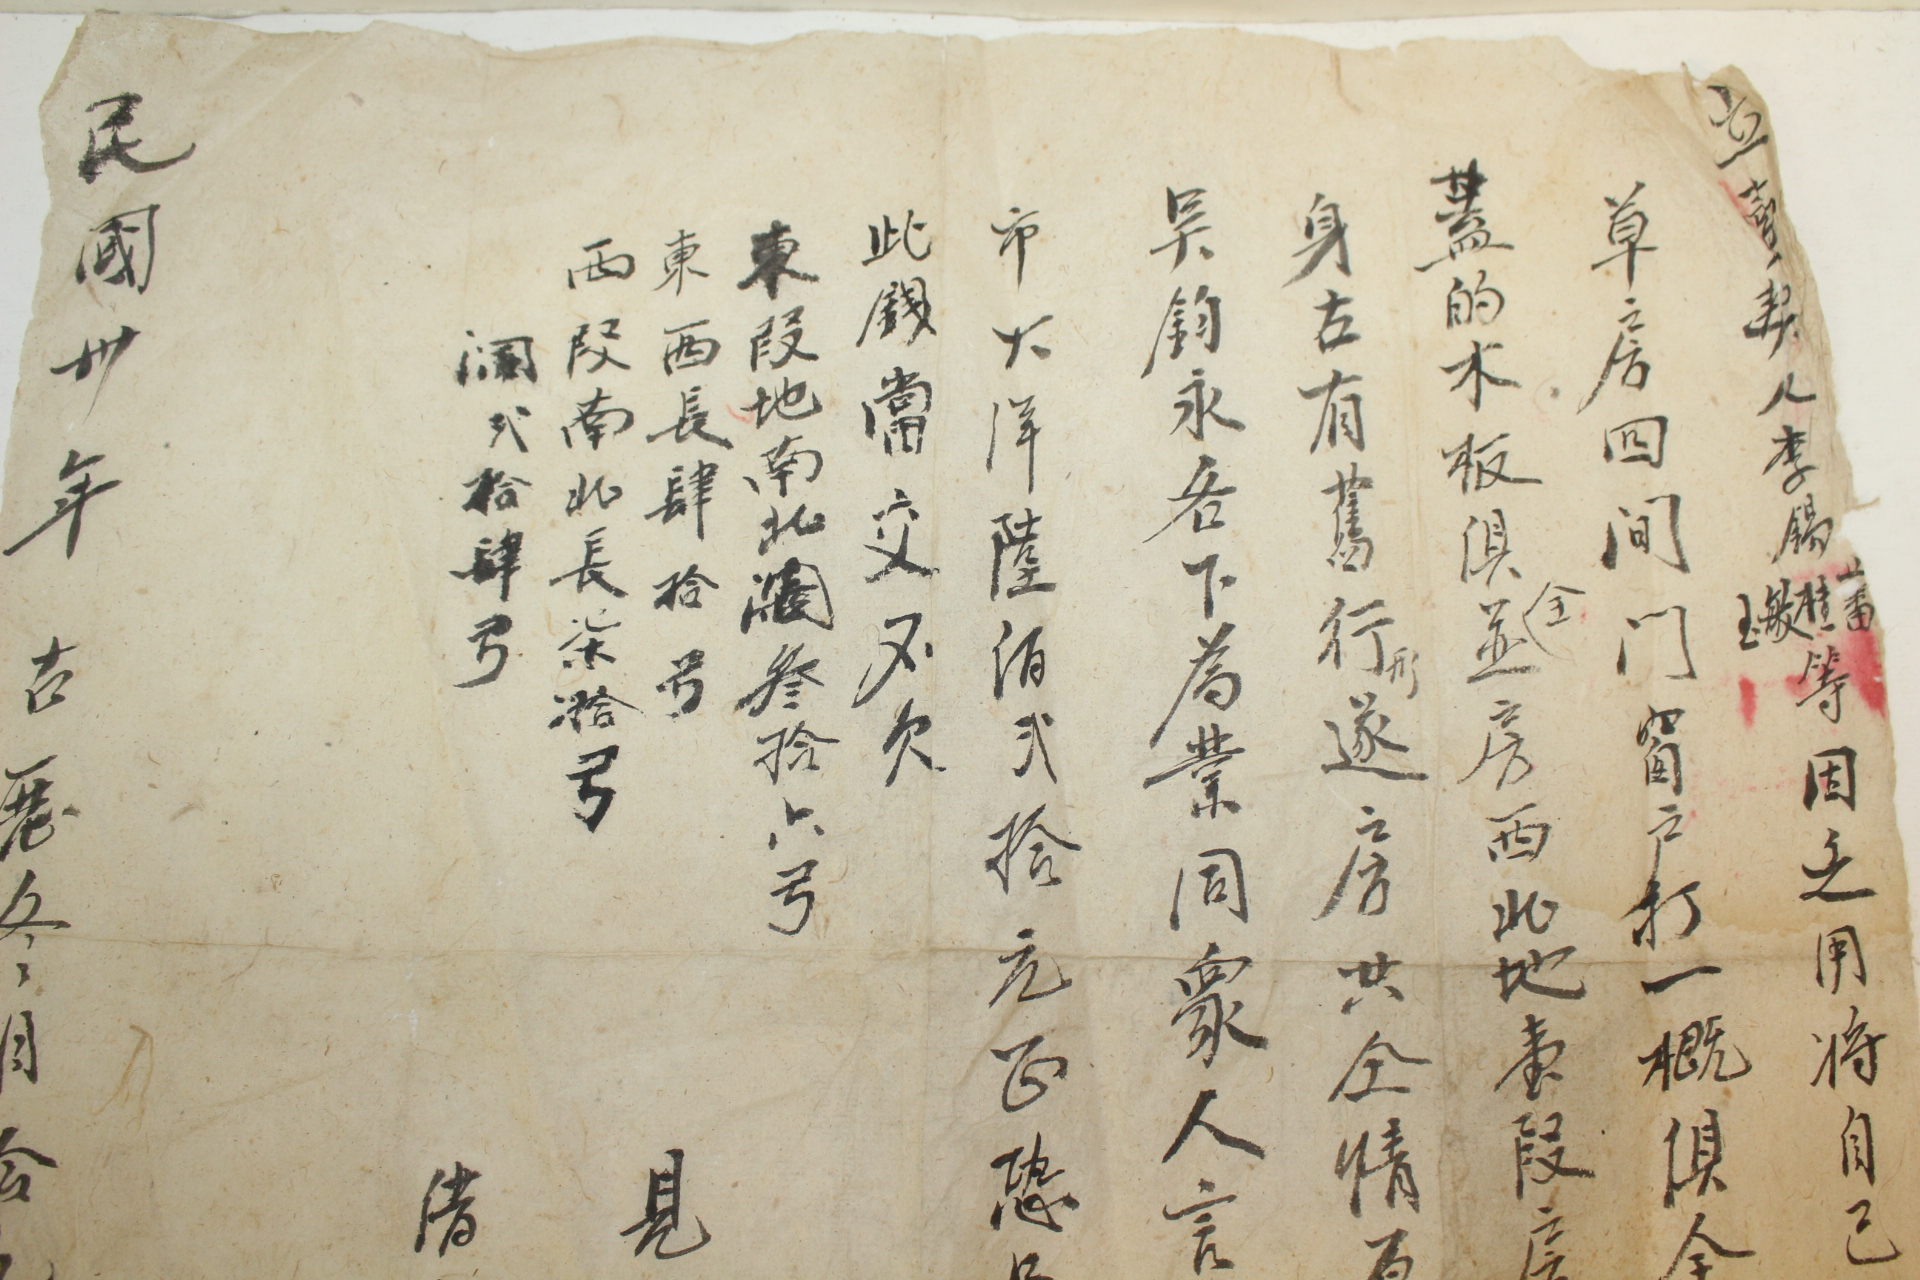 立賣契人李錫蕃桂敏玉等因乏用將自己
草房四間門窗戶打一概俱全
蓋的木板俱全並房西北地壹段房
身古有舊行形遂房共仝情
吳鈞永名下為業同衆人言
市大洋陸佰弍拾元正恐
此錢當交不欠
東段地南北濶叄拾六弓
東西長肆拾弓
西段南北長柒拾弓
濶弍拾肆弓
見
借
民國卅年 古曆冬月拾